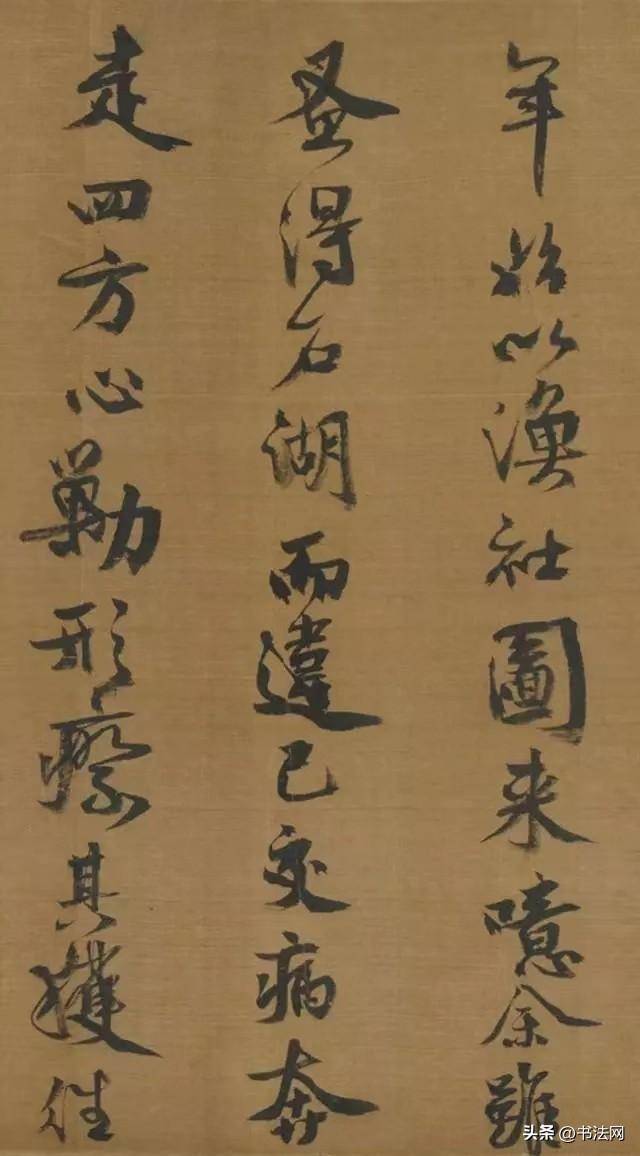 年始以漁社圖来噫余雖
蚤得石湖而違己交病奔
走四方心勦形瘵其獲往
头条 @书法网